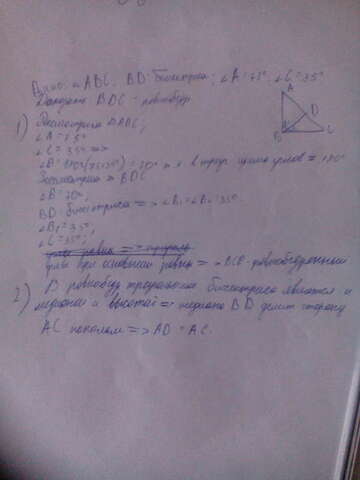 Дано: ∠ABC. BD-биссектриса; ∠A=75°, ∠C=35°
Доказать BDC - равнобедр
A
D
B
C
1) Рассмотрим ΔABC;
∠A=75°
∠C=35° =>
∠B=180-(75+35)=70° т.к в треуг. сумма углов = 180°
Рассмотрим Δ BDC
∠B=70°,
BD-биссектриса => ∠B₁=∠B₂=35°
∠B₁=35°,
∠C=35°;
углы равны =>
углы при основании равны => BCD-равнобедренный
2) В равнобед треугольнике биссектриса является и
медианой и высотой => медиана BD делит сторону
AC пополам => AD = AC.